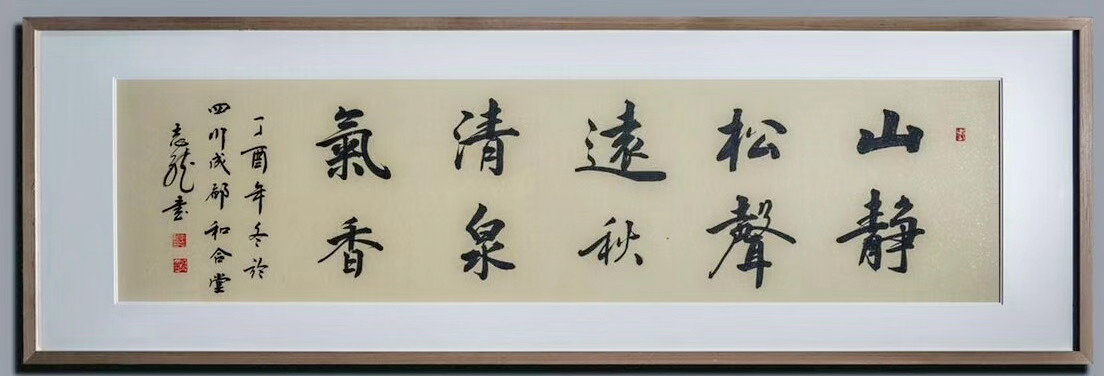 山靜
松聲
遠秋
清泉
氣香
丁酉年冬於
四川成都和合堂
志龍書